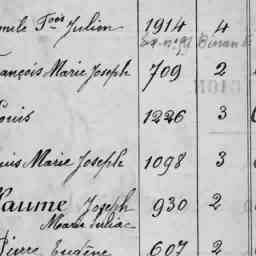 mile Fois Julien 1914 4
Dinan
ançois Marie Joseph 709 2
ouis 1226 3
uis Marie Joseph 1098 3
aume Joseph 930 2
Marie Juliac
Pierre Eugène 607 2